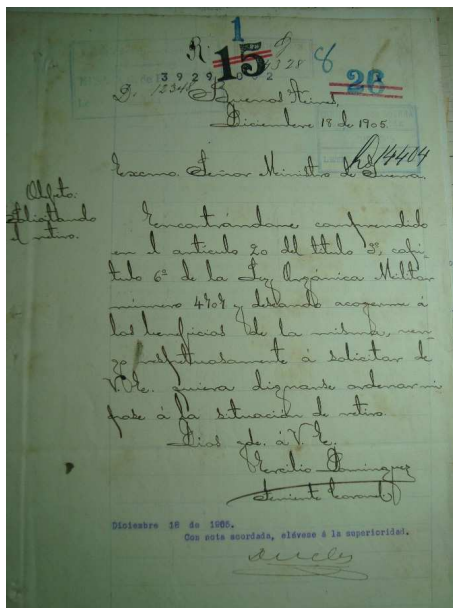 1
R. 15 4328 8
3929 002 26
D. 12341
Buenos Aires,
Diciembre 18 de 1905.
R 14404
Excmo. Señor Ministro de Guerra.
Objeto:
Solicitando
el retiro.
Encontrándome comprendido
en el artículo 20 del título 3º, capí-
tulo 6º de la Ley Orgánica Militar
número 4707 y deseando acogerme á
los beneficios de la misma, ven-
go respetuosamente á solicitar de
V.E. quiera dignarse ordenar mi
pase á la situación de retiro.
Dios gde. á V.E.
Ercilio Dominguez
Teniente Coronel
Diciembre 18 de 1905.
Con nota acordada, elévese á la superioridad.